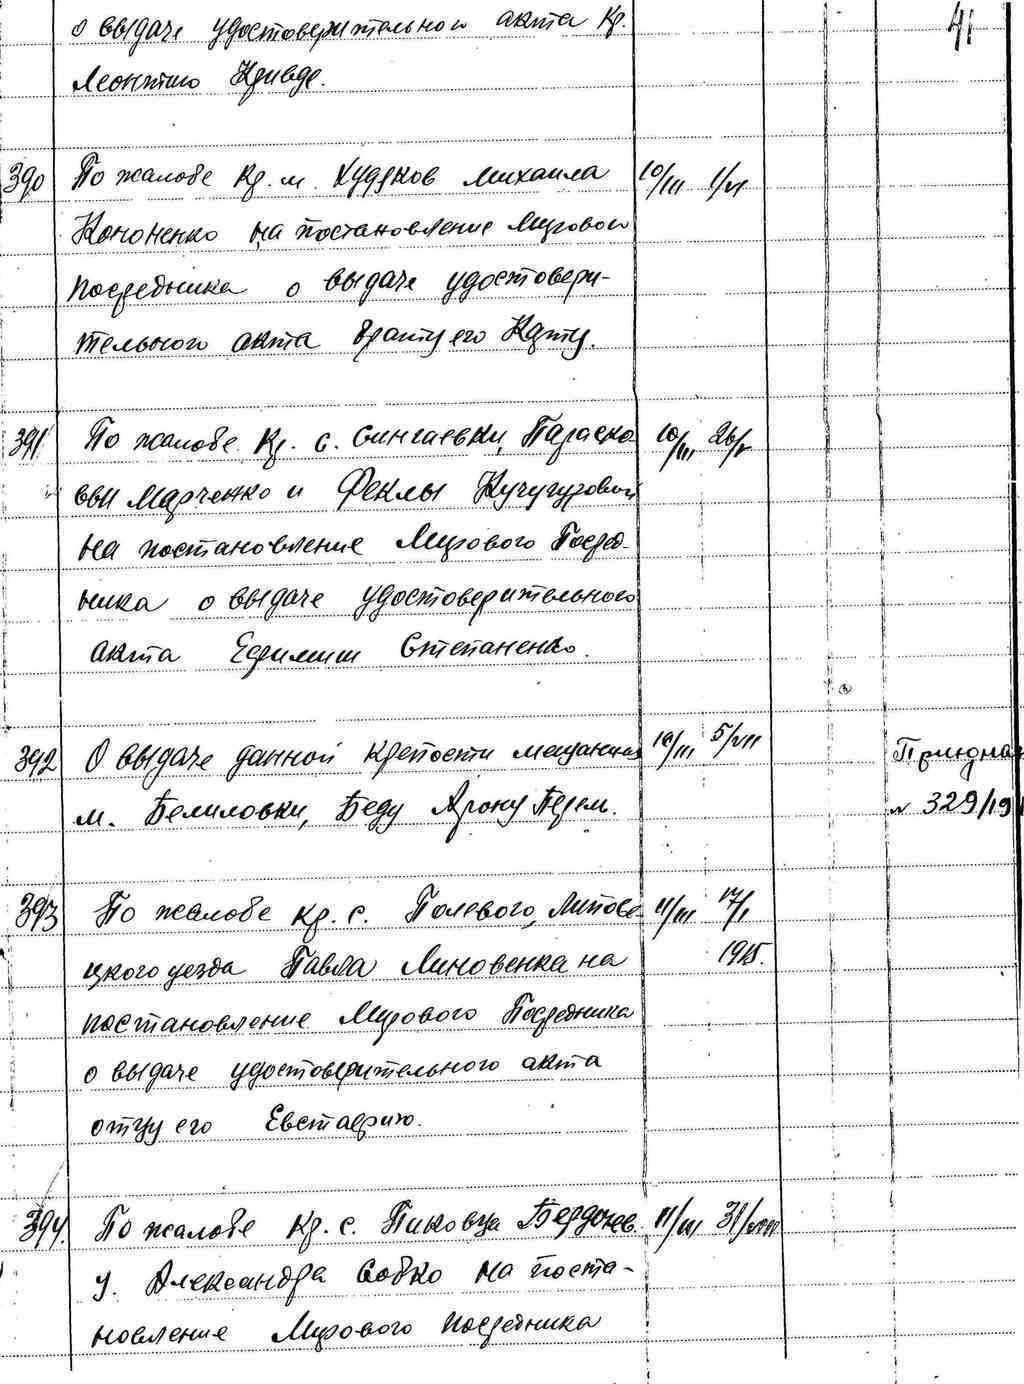 о выдаче удостоверительного акта кр. 41
Леонтию Кривде.
390 По жалобе кр. м. Худяков Михаила 10/III 1/VI
Кононенко на постановление Мирового
посредника о выдаче удостовери-
тельного акта брату его Карпу.
391 По жалобе кр. с. Сингаевки, Параско 10/III 26/V
вьи Марченко и Феклы Кучугуровой
на постановление Мирового Посред-
ника о выдаче удостоверительного
акта Ефимии Степаненко.
392 О выдаче данной крепости мещанину 10/III 5/VII
м. Белиловки, Беду Арону
№ 329/19
393 По жалобе кр. с. Полевого, Липове- 11/III 17/I
цкого уезда Павла Линовенка на 1915.
постановление Мирового Посредника
о выдаче удостоверительного акта
отцу его Евстафию.
394. По жалобе кр. с. Пиковца Бердичев. 11/III 31/VIII
у. Александра Собко на поста-
новление Мирового посредника